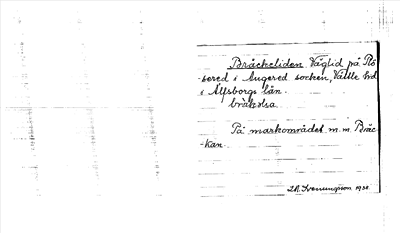 Bräckeliden. Väglid på Rö
-sered i Angered socken, Vättle hd
i Älfsborgs län.
bräkəlia
På markområdet m. m. Bräc
-kan.
J.R. Svenungsson 1930